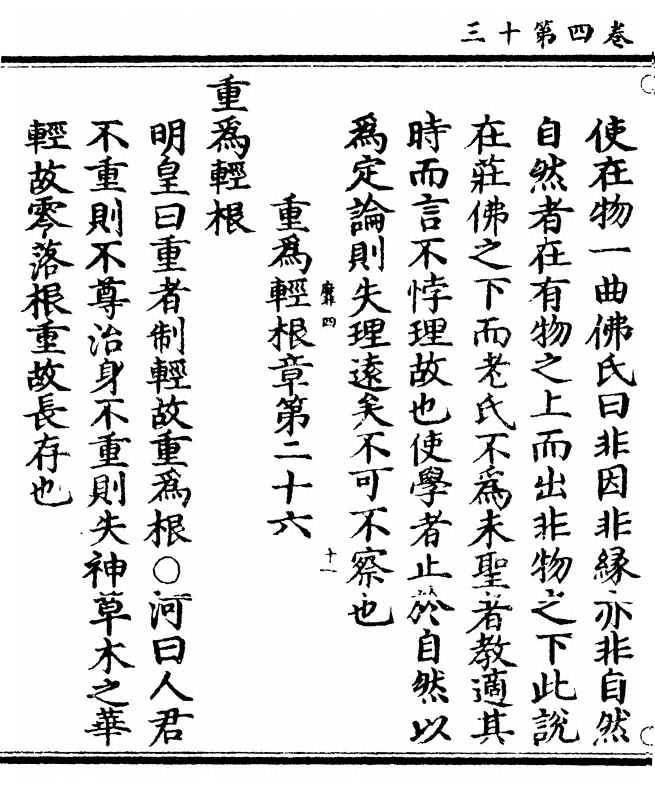 三十第四卷
使在物一曲佛氏曰非因非緣亦非自然
自然者在有物之上而出非物之下此說
在莊佛之下而老氏不為未聖者教適其
時而言不悖理故也使學者止於自然以
為定論則失理遠矣不可不察也
靡四
十一
重為輕根章第二十六
重為輕根
明皇曰重者制輕故重為根○河曰人君
不重則不尊治身不重則失神草木之華
輕故零落根重故長存也